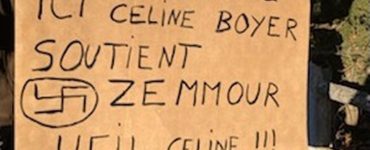 ICI
CELINE BOYER
SOUTIENT
ZEMMOUR
HEIL CELINE !!!